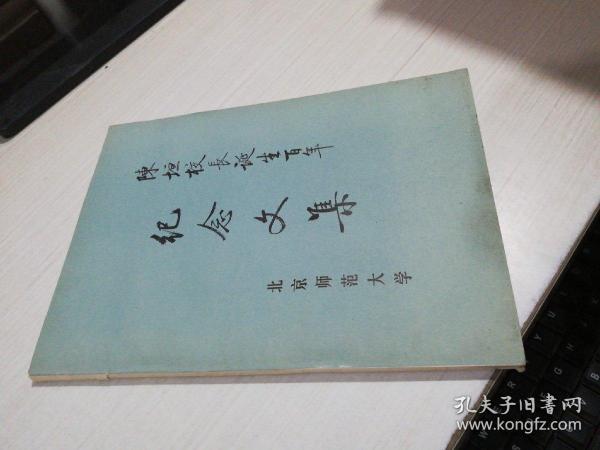 陳垣校长诞生百年
纪念文集
北京师范大学
孔夫子旧書网
www.kongfz.com